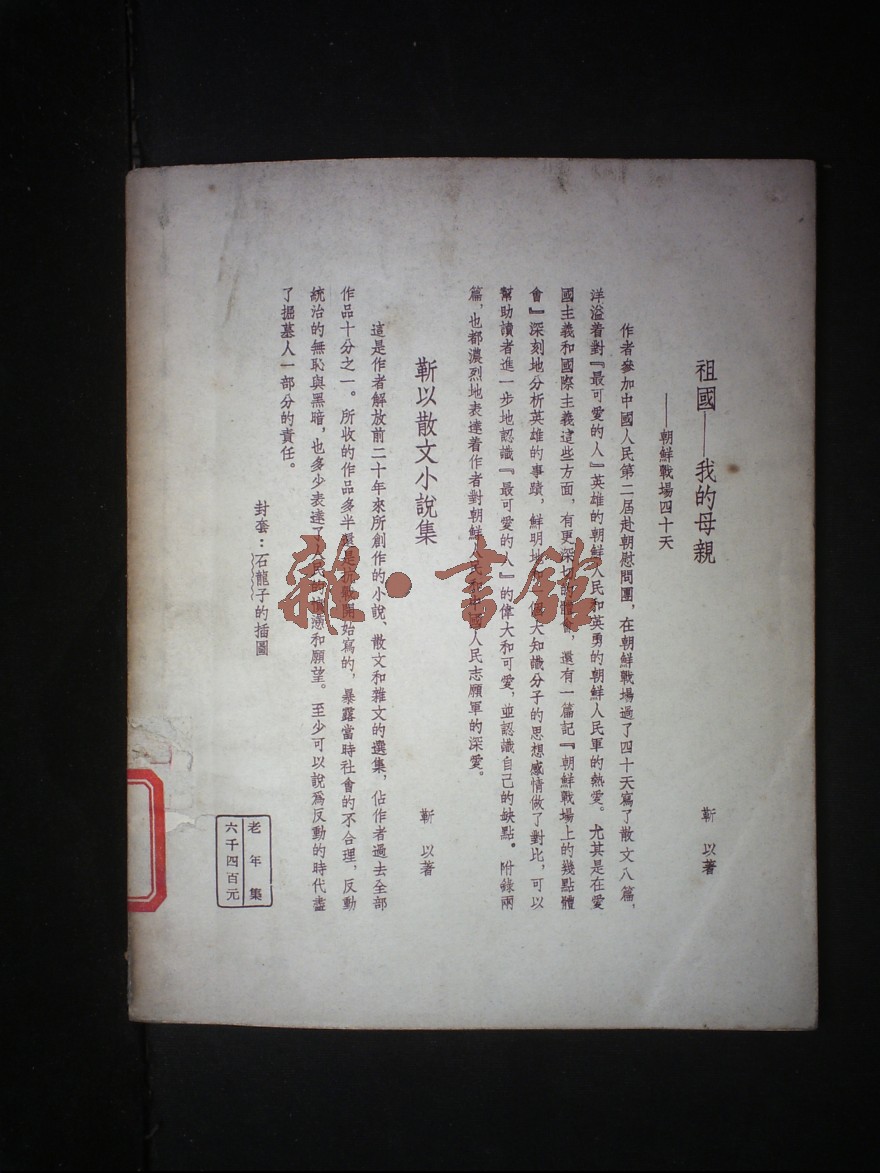 祖國——我的母親
——朝鮮戰場四十天
靳以著
作者參加中國人民第二届赴朝慰問團，在朝鮮戰場過了四十天寫了散文八篇，
洋溢着對『最可愛的人』英雄的朝鮮人民和英勇的朝鮮人民軍的熱愛。尤其是在愛
國主義和國際主義這些方面，有更深切的體會，還有一篇記『朝鮮戰場上的幾點體
會』深刻地分析英雄的事蹟，鮮明地和 大知識分子的思想感情做了對比，可以
幫助讀者進一步地認識『最可愛的人』的偉大和可愛，並認識自己的缺點。附錄兩
篇，也都濃烈地表達着作者對朝鮮人民和中國人民志願軍的深愛。
靳以散文小說集
靳以著
這是作者解放前二十年來所創作的小說、散文和雜文的選集，佔作者過去全部
作品十分之一。所收的作品多半還是抗戰開始寫的，暴露當時社會的不合理，反動
統治的無恥與黑暗，也多少表達了人民的 和願望。至少可以說爲反動的時代盡
了掘墓人一部分的責任。
封套：石龍子的插圖
老年集
六千四百元
雜·書館